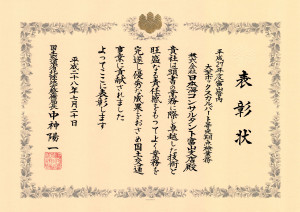 表彰状
平成27年度富山管内
大型ボックスカルバート等定期点検業務
株式会社日本海コンサルタント富山支店殿
貴社は頭書の業務に際し卓越した技術と
旺盛なる責任感をもってよく業務を
完遂し優秀な成果をおさめ国土交通
事業に貢献されました
よってここに表彰します
平成二十八年七月二十日
国土交通省北陸地方整備局長 中神陽一